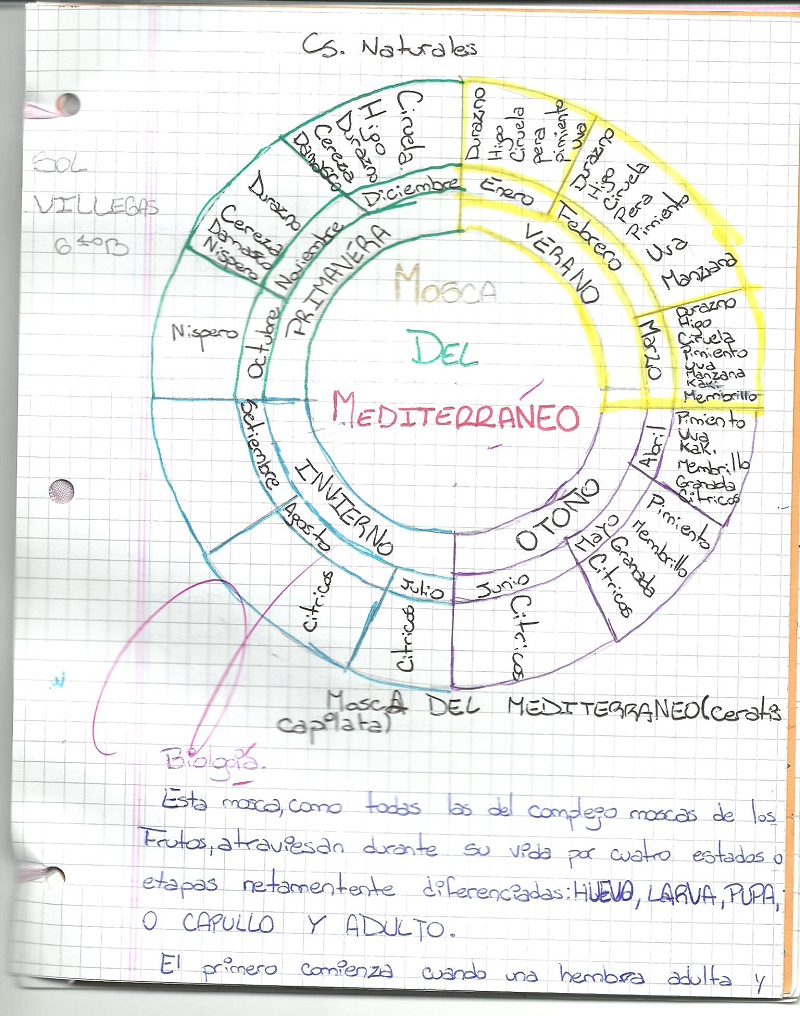 Cs. Naturales
SOL
VILLEGAS
6toB
MOSCA
DEL
MEDITERRÁNEO
VERANO
Enero
Durazno
Higo
Ciruela
Pera
pimiento
uva
Febrero
Durazno
Higo
Ciruela
Pera
Pimiento
Uva
Manzana
Marzo
Durazno
Higo
Ciruela
Pimiento
Uva
Manzana
Kaki
Membrillo
OTOÑO
Abril
Pimiento
Uva
Kak.
Membrillo
Granada
Citricos
Mayo
Pimiento
Membrillo
Granada
Citricos
Junio
Citricos
INVIERNO
Julio
Citricos
Agosto
Citricos
Setiembre
PRIMAVERA
Octubre
Nispero
Noviembre
Durazno
Cereza
Damasco
Nispero
Diciembre
Ciruela.
Higo
Durazno
Cereza
Damasco
MoscA DEL MEDITERRANEO(ceratis
capilata)
Biología.
Esta mosca, como todas las del complego moscas de los
Frutos, atraviesan durante su vida por cuatro estados o
etapas netamentente diferenciadas: HUEVO, LARVA, PUPA,
O CAPULLO Y ADULTO.
El primero comienza cuando una hembra adulta y